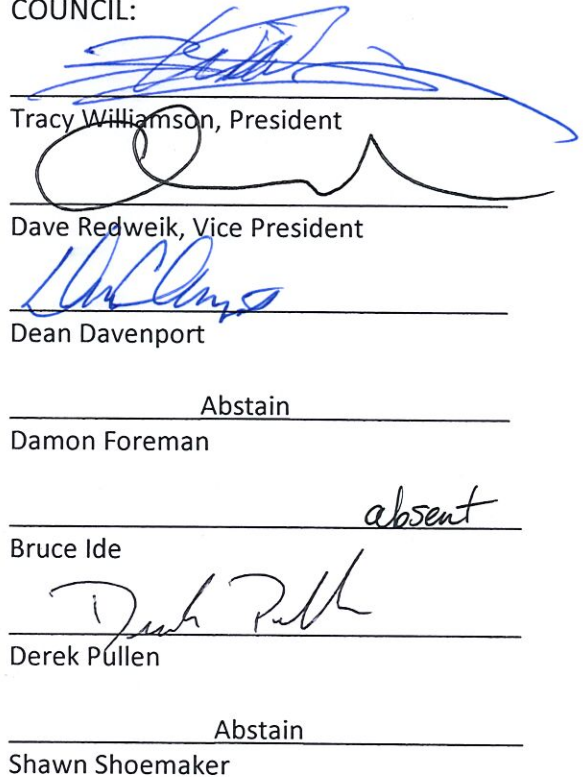 COUNCIL:
Tracy Williamson, President
Dave Redweik, Vice President
Dean Davenport
Abstain
Damon Foreman
absent
Bruce Ide
Derek Pullen
Derek Pullen
Abstain
Shawn Shoemaker